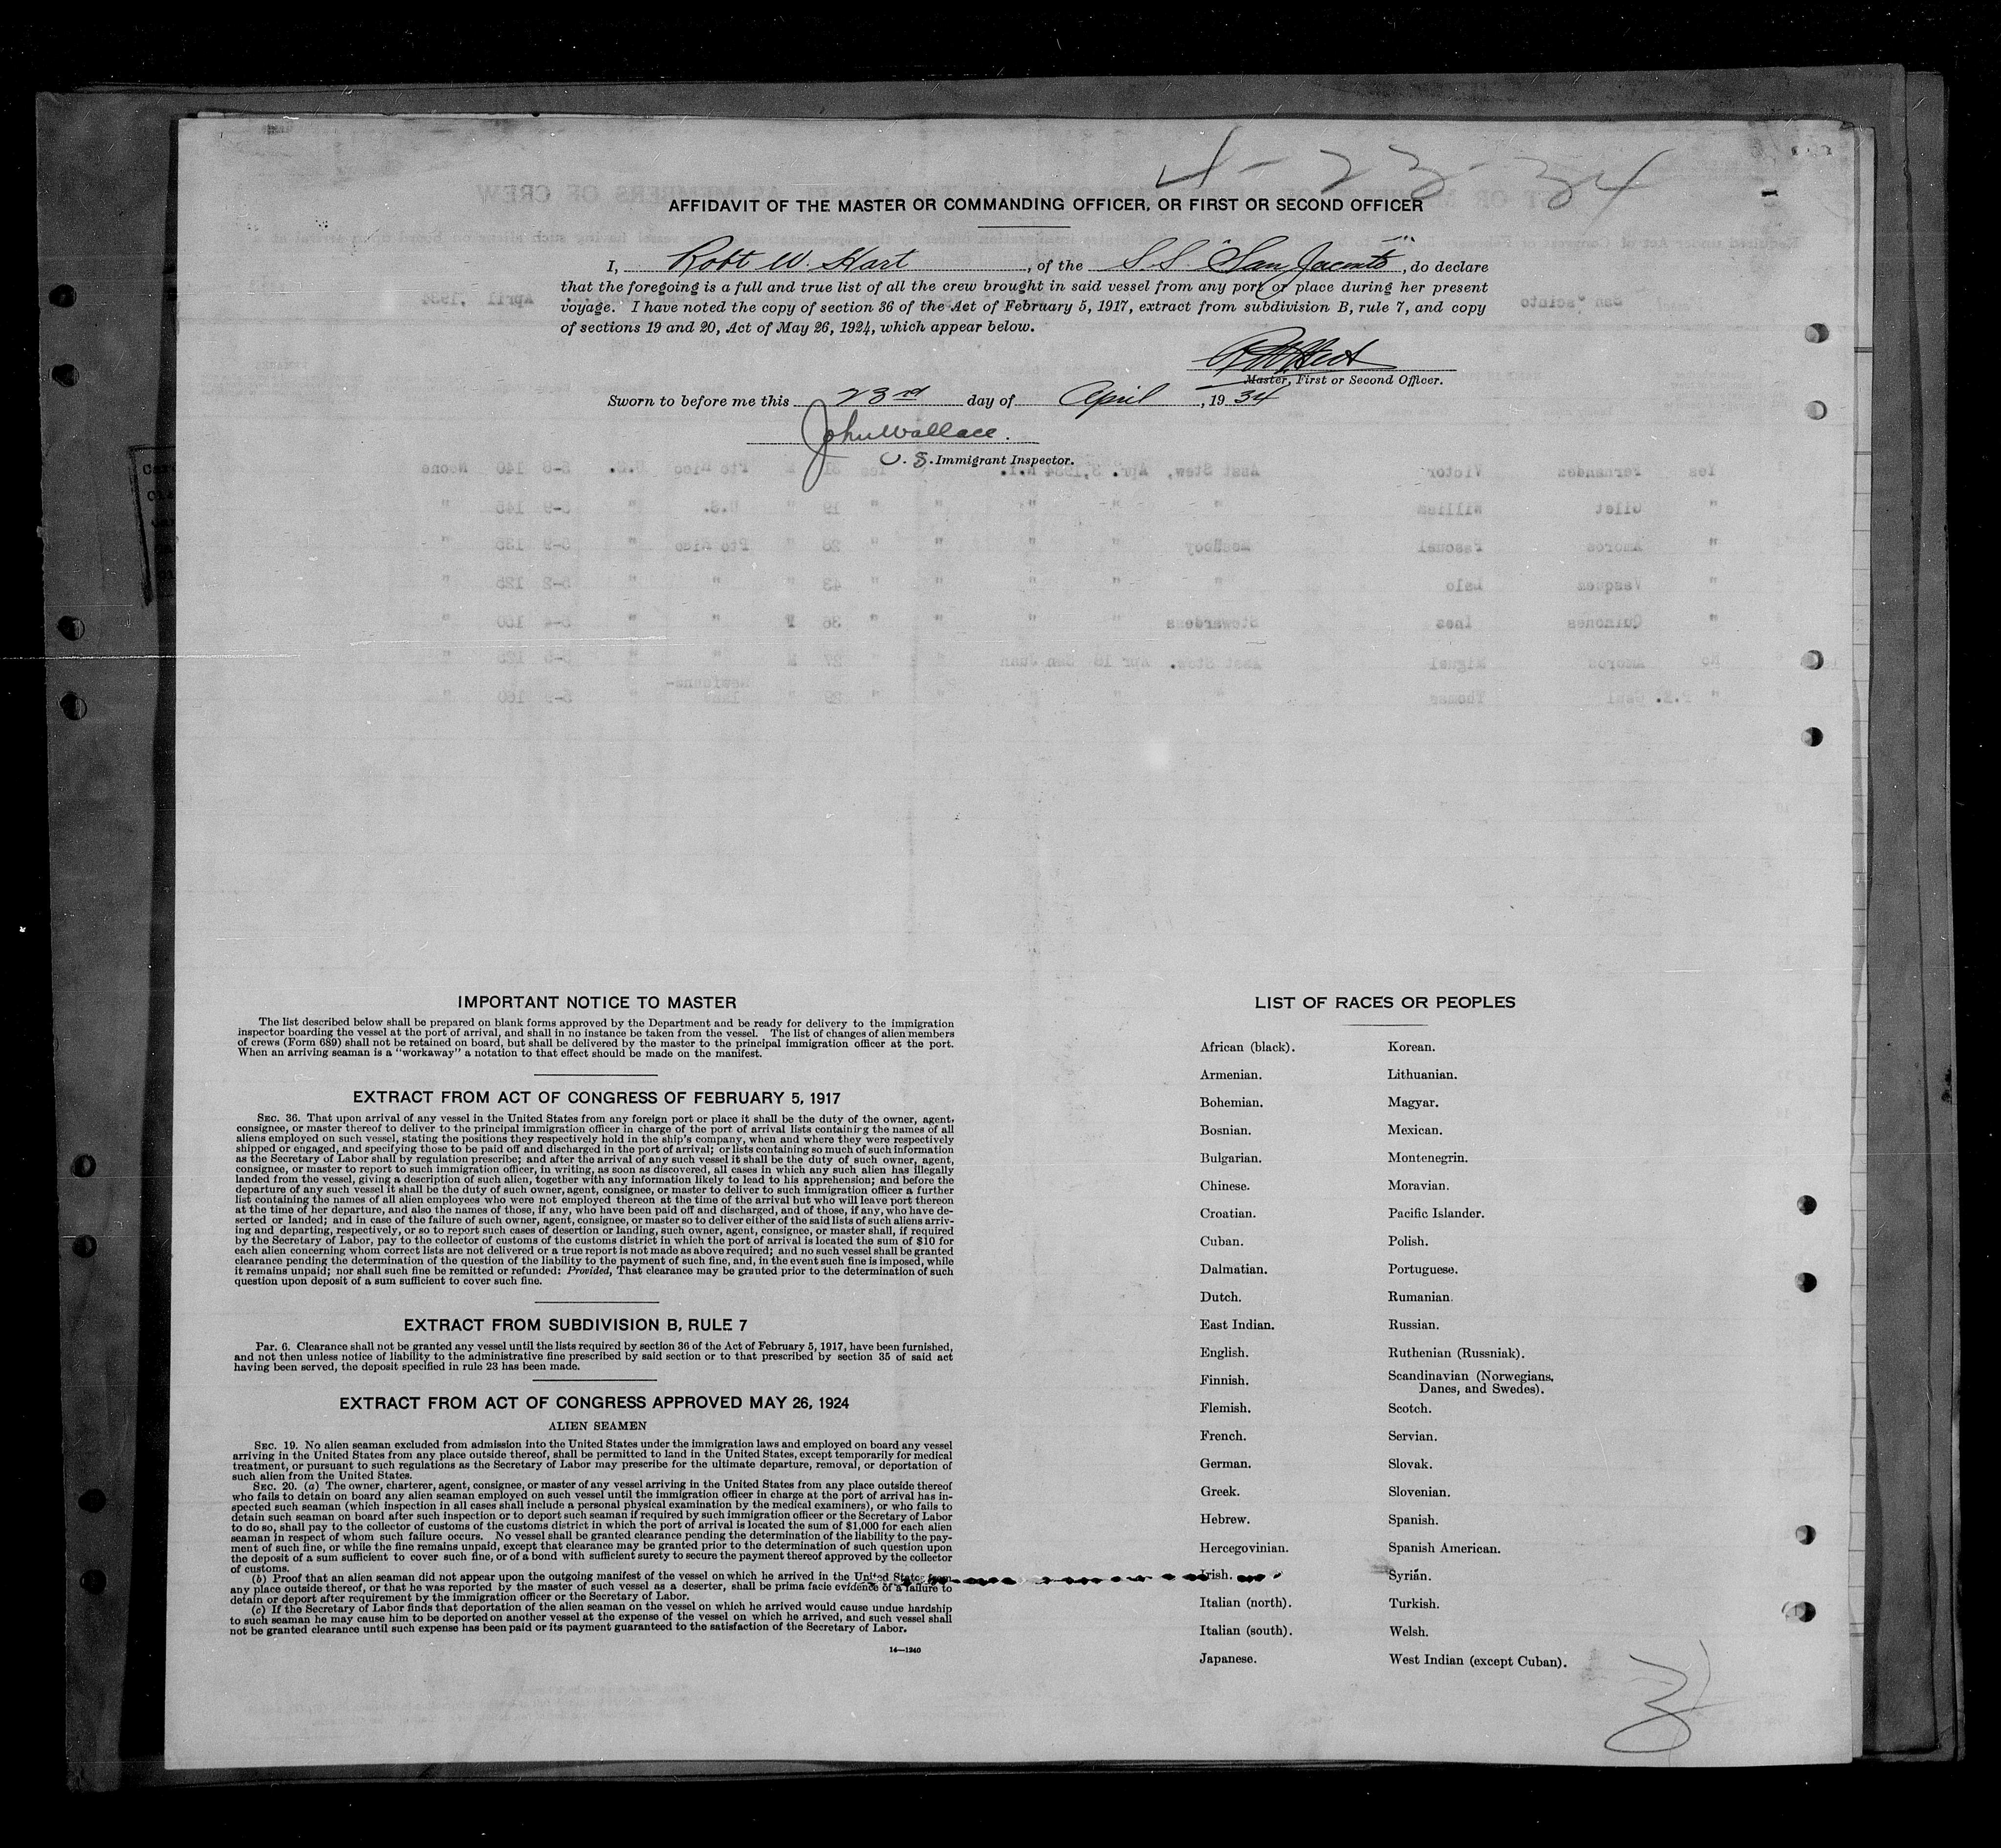 4-23-34
AFFIDAVIT OF THE MASTER OR COMMANDING OFFICER, OR FIRST OR SECOND OFFICER
I, Robt W. Hart, of the S.S. "San Jacinto", do declare
that the foregoing is a full and true list of all the crew brought in said vessel from any port or place during her present
voyage. I have noted the copy of section 36 of the Act of February 5, 1917, extract from subdivision B, rule 7, and copy
of sections 19 and 20, Act of May 26, 1924, which appear below.
Master, First or Second Officer.
Sworn to before me this 23rd day of April, 1934
John Wallace.
U. S. Immigrant Inspector.
IMPORTANT NOTICE TO MASTER
The list described below shall be prepared on blank forms approved by the Department and be ready for delivery to the immigration
inspector boarding the vessel at the port of arrival, and shall in no instance be taken from the vessel. The list of changes of alien members
of crews (Form 689) shall not be retained on board, but shall be delivered by the master to the principal immigration officer at the port.
When an arriving seaman is a "workaway" a notation to that effect should be made on the manifest.
EXTRACT FROM ACT OF CONGRESS OF FEBRUARY 5, 1917
SEC. 36. That upon arrival of any vessel in the United States from any foreign port or place it shall be the duty of the owner, agent,
consignee, or master thereof to deliver to the principal immigration officer in charge of the port of arrival lists containing the names of all
aliens employed on such vessel, stating the positions they respectively hold in the ship's company, when and where they were respectively
shipped or engaged, and specifying those to be paid off and discharged in the port of arrival; or lists containing so much of such information
as the Secretary of Labor shall by regulation prescribe; and after the arrival of any such vessel it shall be the duty of such owner, agent,
consignee, or master to report to such immigration officer, in writing, as soon as discovered, all cases in which any such alien has illegally
landed from the vessel, giving a description of such alien, together with any information likely to lead to his apprehension; and before the
departure of any such vessel it shall be the duty of such owner, agent, consignee, or master to deliver to such immigration officer a further
list containing the names of all alien employees who were not employed thereon at the time of the arrival but who will leave port thereon
at the time of her departure, and also the names of those, if any, who have been paid off and discharged, and of those, if any, who have de-
serted or landed; and in case of the failure of such owner, agent, consignee, or master so to deliver either of the said lists of such aliens arriv-
ing and departing, respectively, or so to report such cases of desertion or landing, such owner, agent, consignee, or master shall, if required
by the Secretary of Labor, pay to the collector of customs of the customs district in which the port of arrival is located the sum of $10 for
each alien concerning whom correct lists are not delivered or a true report is not made as above required; and no such vessel shall be granted
clearance pending the determination of the question of the liability to the payment of such fine, and, in the event such fine is imposed, while
it remains unpaid; nor shall such fine be remitted or refunded: Provided, That clearance may be granted prior to the determination of such
question upon deposit of a sum sufficient to cover such fine.
EXTRACT FROM SUBDIVISION B, RULE 7
Par. 6. Clearance shall not be granted any vessel until the lists required by section 36 of the Act of February 5, 1917, have been furnished,
and not then unless notice of liability to the administrative fine prescribed by said section or to that prescribed by section 35 of said act
having been served, the deposit specified in rule 23 has been made.
EXTRACT FROM ACT OF CONGRESS APPROVED MAY 26, 1924
ALIEN SEAMEN
SEC. 19. No alien seaman excluded from admission into the United States under the immigration laws and employed on board any vessel
arriving in the United States from any place outside thereof, shall be permitted to land in the United States, except temporarily for medical
treatment, or pursuant to such regulations as the Secretary of Labor may prescribe for the ultimate departure, removal, or deportation of
such alien from the United States.
SEC. 20. (a) The owner, charterer, agent, consignee, or master of any vessel arriving in the United States from any place outside thereof
who fails to detain on board any alien seaman employed on such vessel until the immigration officer in charge at the port of arrival has in-
spected such seaman (which inspection in all cases shall include a personal physical examination by the medical examiners), or who fails to
detain such seaman on board after such inspection or to deport such seaman if required by such immigration officer or the Secretary of Labor
to do so, shall pay to the collector of customs of the customs district in which the port of arrival is located the sum of $1,000 for each alien
seaman in respect of whom such failure occurs. No vessel shall be granted clearance pending the determination of the liability to the pay-
ment of such fine, or while the fine remains unpaid, except that clearance may be granted prior to the determination of such question upon
the deposit of a sum sufficient to cover such fine, or of a bond with sufficient surety to secure the payment thereof approved by the collector
of customs.
(b) Proof that an alien seaman did not appear upon the outgoing manifest of the vessel on which he arrived in the United States from
any place outside thereof, or that he was reported by the master of such vessel as a deserter, shall be prima facie evidence of a failure to
detain or deport after requirement by the immigration officer or the Secretary of Labor.
(c) If the Secretary of Labor finds that deportation of the alien seaman on the vessel on which he arrived would cause undue hardship
to such seaman he may cause him to be deported on another vessel at the expense of the vessel on which he arrived, and such vessel shall
not be granted clearance until such expense has been paid or its payment guaranteed to the satisfaction of the Secretary of Labor.
14—1240
LIST OF RACES OR PEOPLES
African (black). Korean.
Armenian. Lithuanian.
Bohemian. Magyar.
Bosnian. Mexican.
Bulgarian. Montenegrin.
Chinese. Moravian.
Croatian. Pacific Islander.
Cuban. Polish.
Dalmatian. Portuguese.
Dutch. Rumanian.
East Indian. Russian.
English. Ruthenian (Russniak).
Finnish. Scandinavian (Norwegians,
Danes, and Swedes).
Flemish. Scotch.
French. Servian.
German. Slovak.
Greek. Slovenian.
Hebrew. Spanish.
Hercegovinian. Spanish American.
Irish. Syrian.
Italian (north). Turkish.
Italian (south). Welsh.
Japanese. West Indian (except Cuban).
3